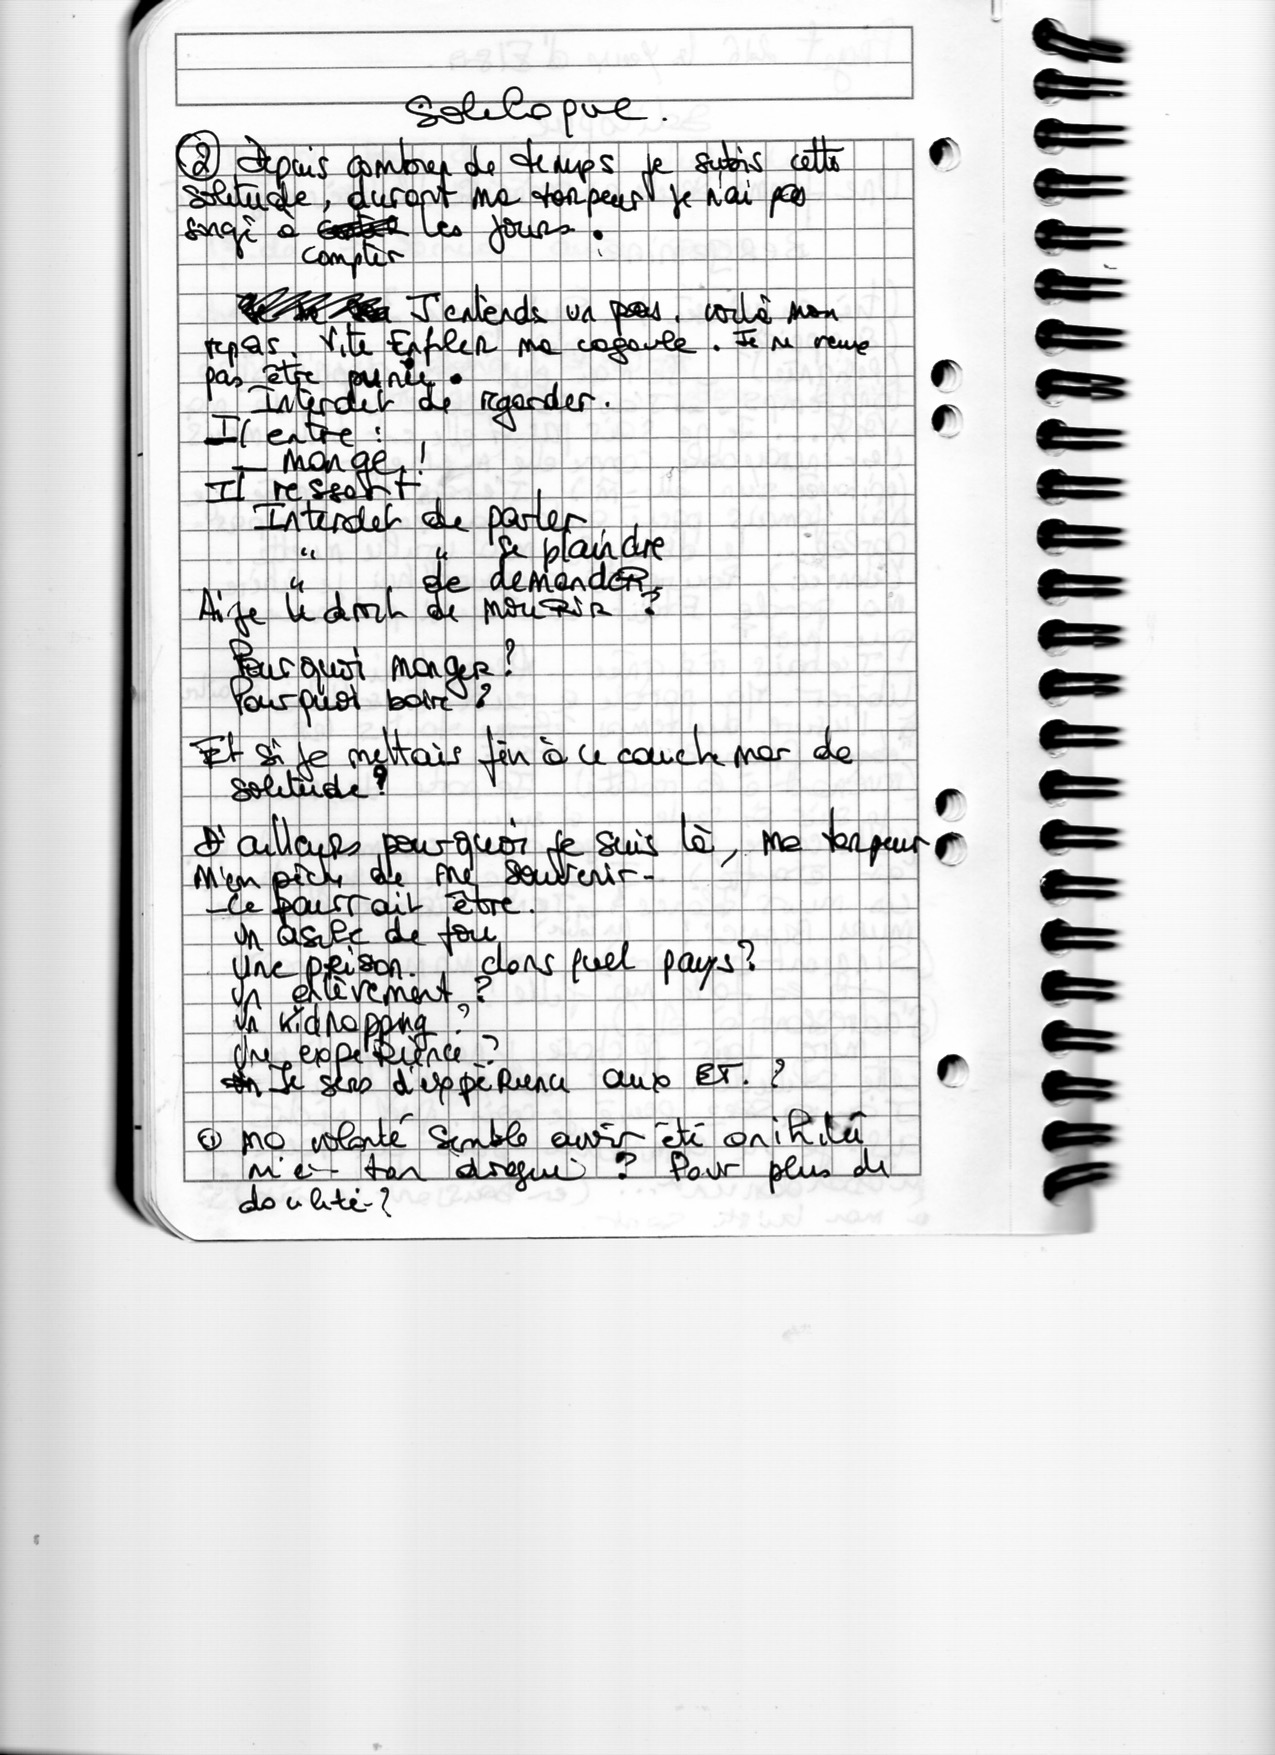 Soliloque.
② Depuis combien de temps je subis cette
solitude, durant ma torpeur je n'ai pas
songé à les jours.
compter
J'entends un pas. voilà mon
repas. Vite Enfiler ma cagoule. Je ne veux
pas être punie.
Interdit de regarder.
Il entre :
— mange !
Il ressort
Interdit de parler
" " se plaindre
" de demander
Ai je le droit de mourir ?
Pourquoi manger ?
Pourquoi boire ?
Et si je mettais fin à ce couchemar de
solitude ?
D'ailleurs pourquoi je suis là, ma torpeur
m'empêche de me souvenir -
- Ce pourrait être.
un asile de fou
Une prison. dans quel pays ?
un enlèvement ?
un kidnapping ?
Une expérience ?
Je sers d'expérience aux ET. ?
① ma volonté semble avoir été anihilé
m'a-t-on drogué ? Pour plus de
docilité - ?